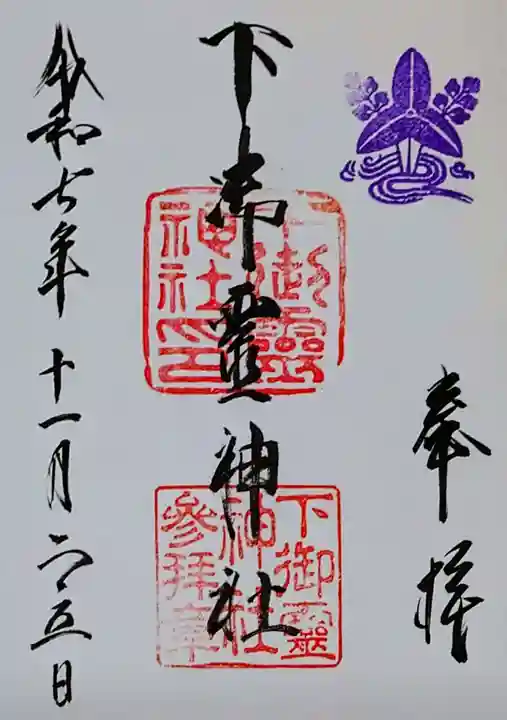 奉拝
下御霊神社
下御靈
神社印
下御靈
神社
參拝章
令和七年十一月二五日